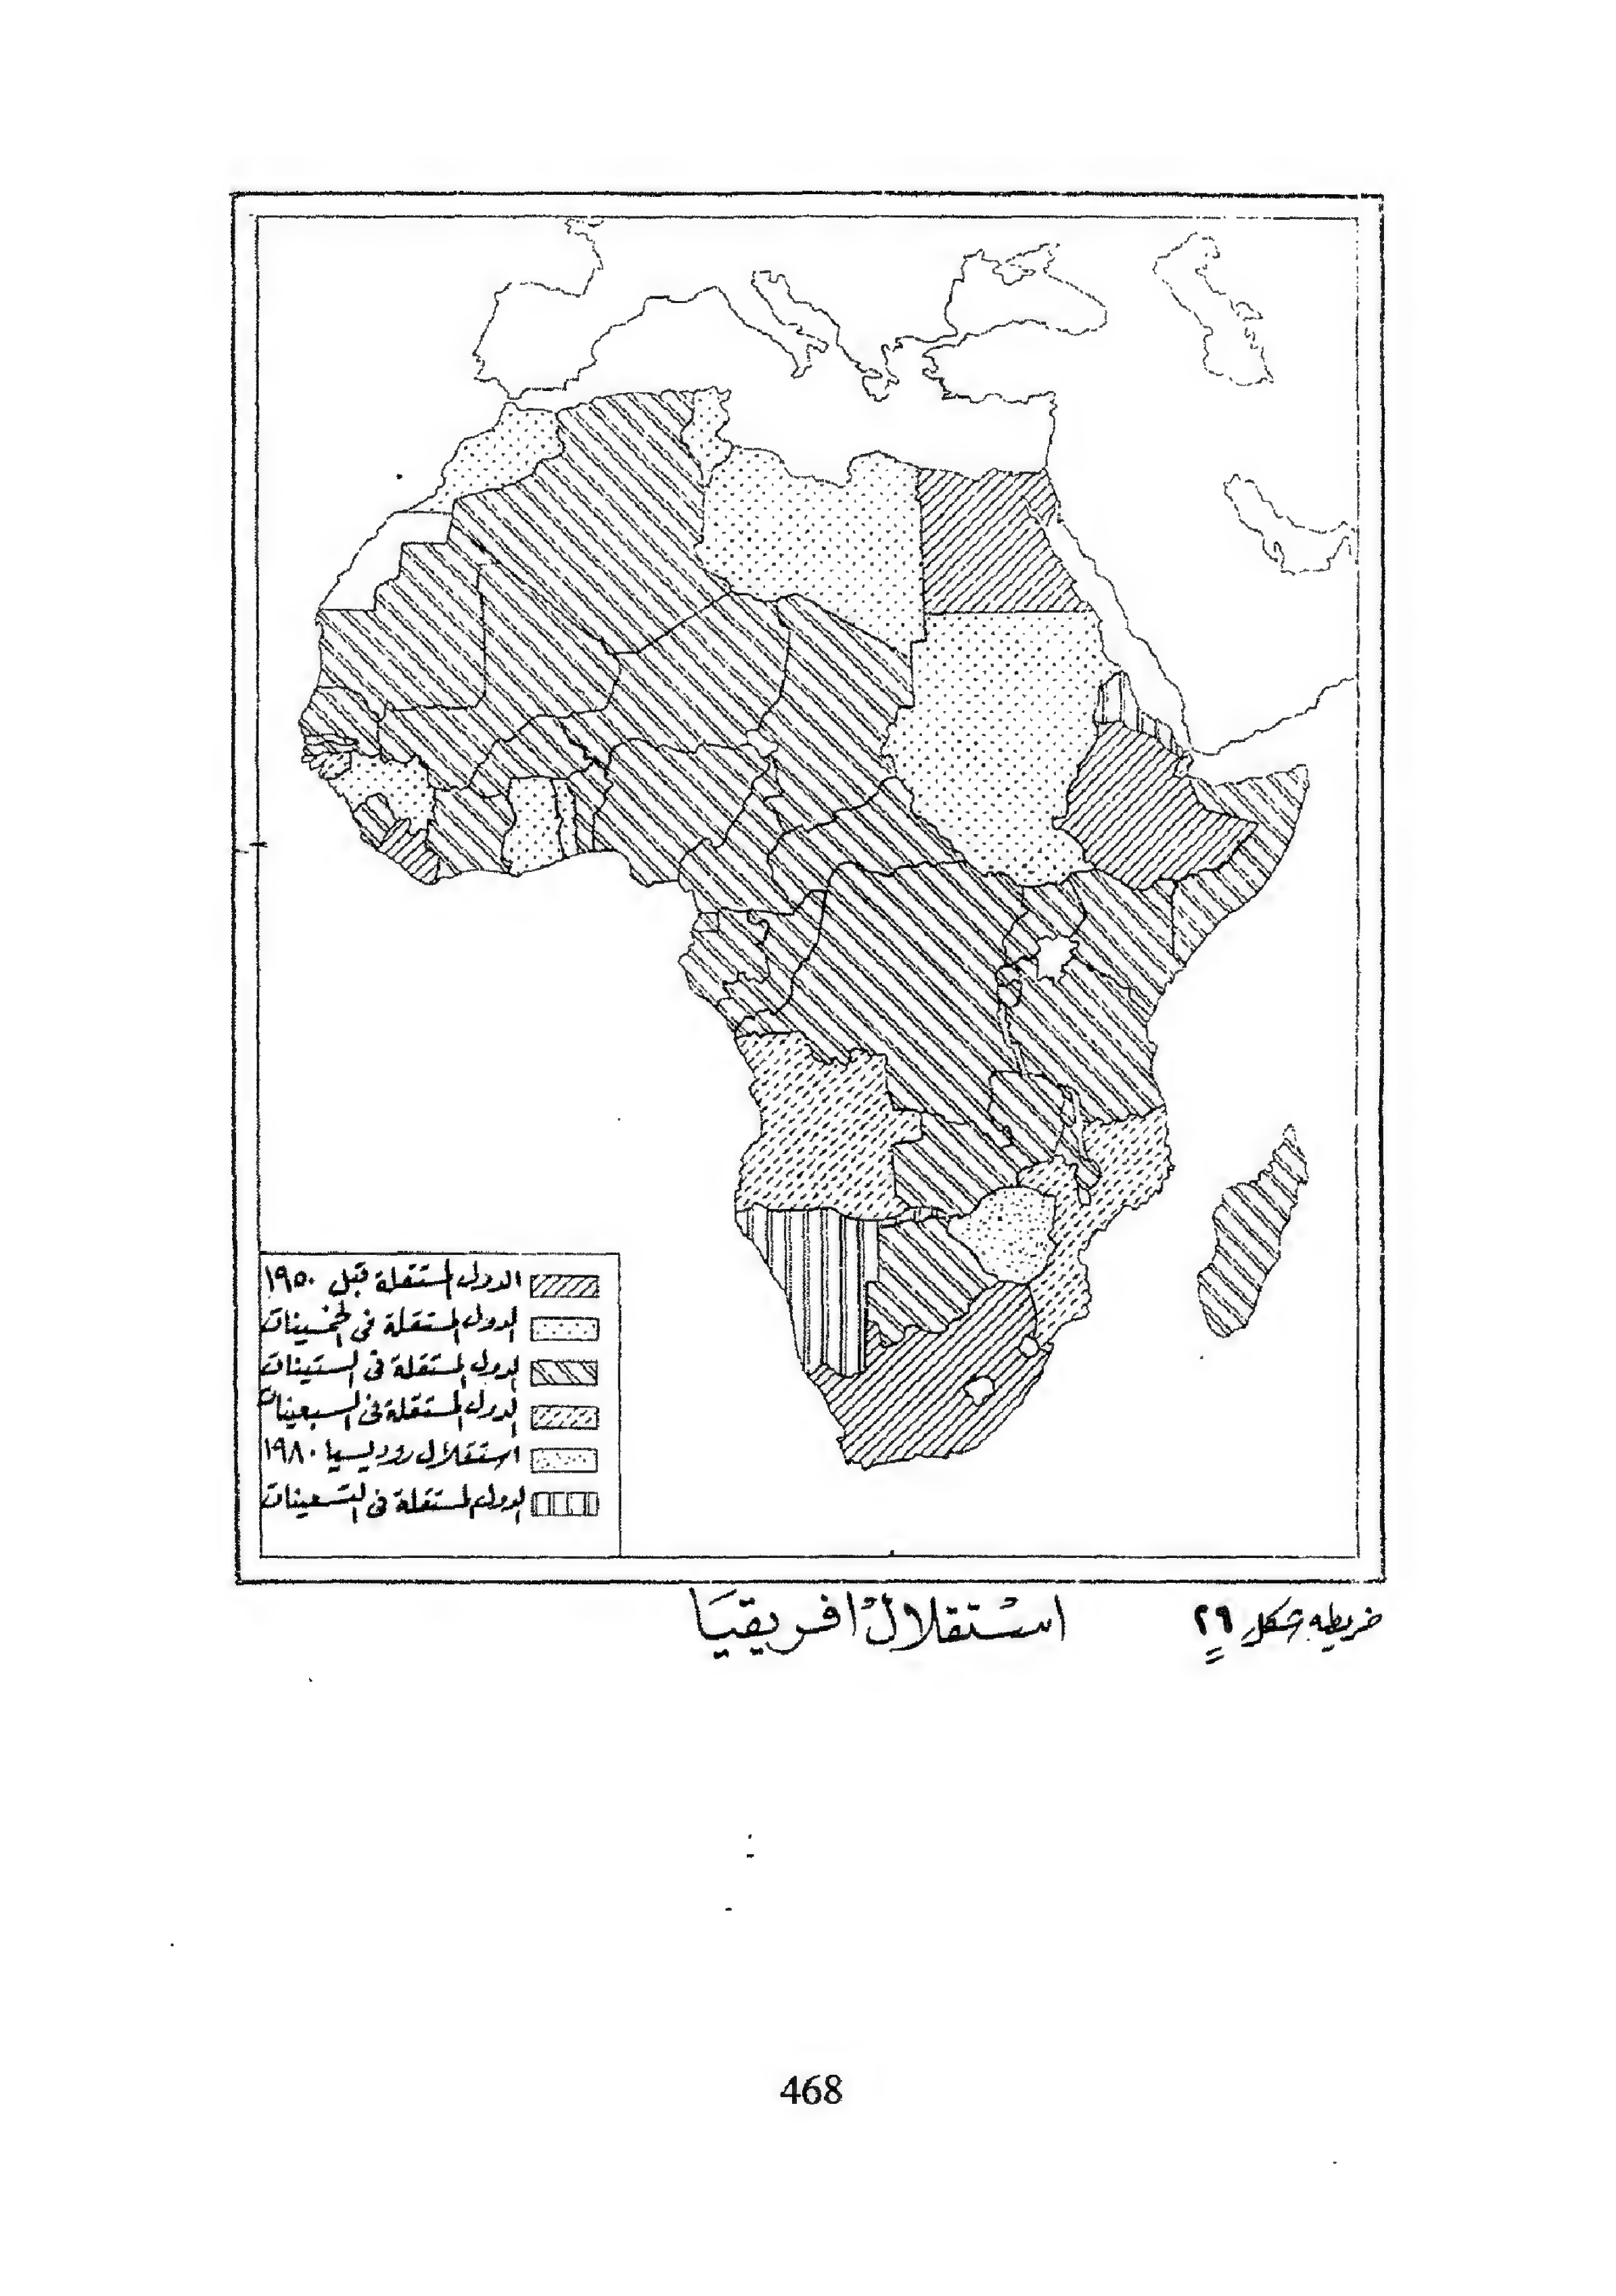 الدول المستقلة قبل ١٩٥٠
الدول المستقلة فى الخمسينات
الدول المستقلة فى الستينات
الدول المستقلة فى السبعينات
استقلال روديسيا ١٩٨٠
الدول المستقلة فى التسعينات
خريطه شكل ٢٩
استقلال افريقيا
468